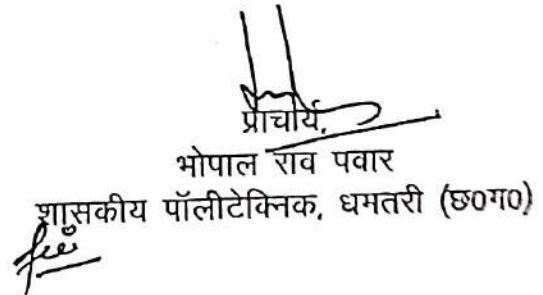 प्राचार्य,
भोपाल राव पवार
शासकीय पॉलीटेक्निक, धमतरी (छ०ग०)